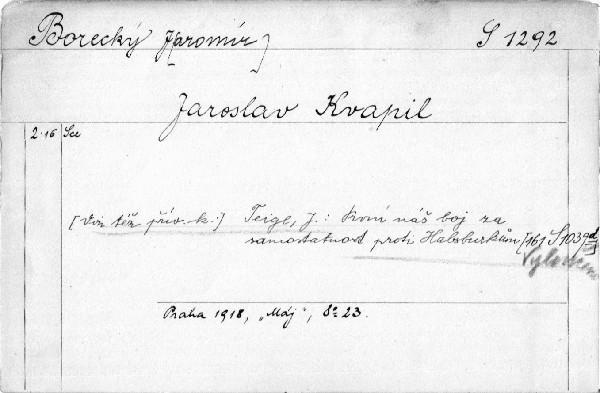 Borecký J[aromír]
S 1292
Jaroslav Kvapil
2.16 Sce
[Viz též přív. k:] Teige, J.: První náš boj za
samostatnost proti Habsburkům [161 S 1039d
Vyloučeno
Praha 1918, „Máj“, 8° 23.